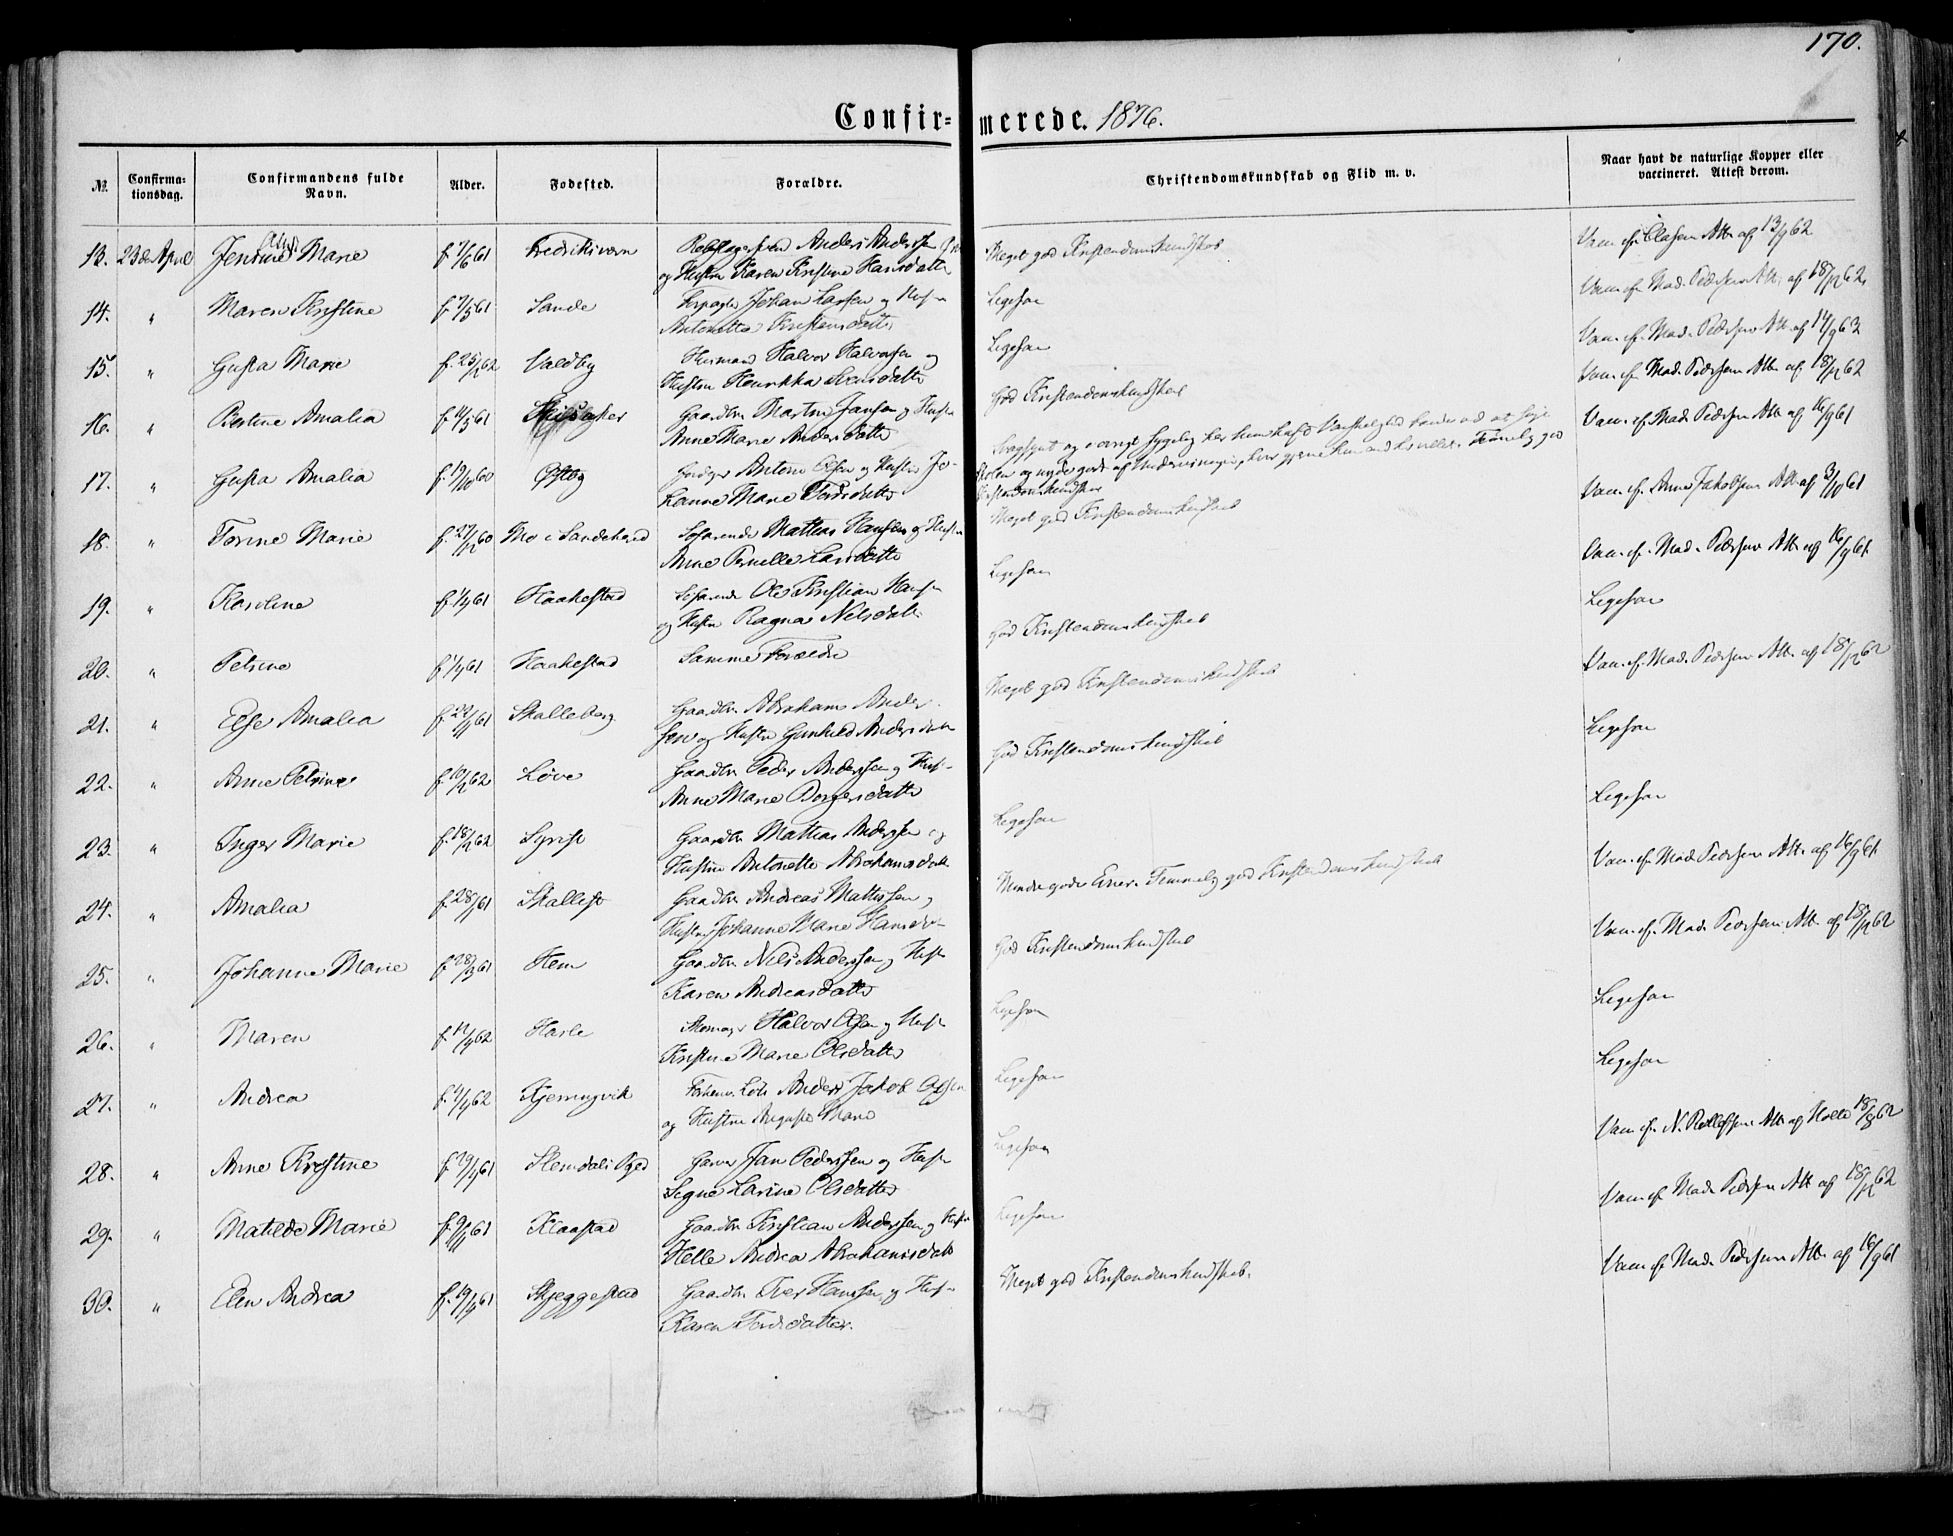 170.
Confirmerede. 1876.
№.
Confirmationsdag.
Confirmandens fulde Navn.
Alder.
Fødested.
Forældre.
Christendomskundskab og Flid m. v.
Naar havt de naturlige Kopper eller vaccineret. Attest derom.
13. 23de April Marie f. 7/6 61 Fredriksværn Anders Andersen Meget god Kristendomskundskab Vacc. ef. Olasen Att. af 13/9 62
og Hustru Karen Kristine Hansdatter
14. " Maren Kristine f. 7/5 61 Sande Johan Larsen og Ligesaa Vacc. ef. Mad. Pedersen Att. af 18/12 62
Antonette Kristensdatter
15. " Gusta Marie f. 25/12 62 Valdby Husmand Halvor Halvorsen og Ligesaa Vacc. ef. Mad. Pedersen Att. af 14/9 63
Hustru Henrikka Svensdatter
16. " Bertine Amalia f. 11/5 61 Gaardbr. Martin Jansen og Hustru God Kristendomskundskab Vacc. ef. Mad. Pedersen Att. af 18/12 62
Anne Marie Andersdatter
17. " Gusta Amalia f. 19/10 60 Østby Anton Olsen og Hustru Jo- Svagsynt og i øvrigt sygelig har hun havt Vanskelighed
hanne Marie Tordsdatter Skolen og nyde godt af Undervisningen, hvor gjerne hun end har villet. Temmelig god
Kristendomskundskab Vacc. ef. Mad. Pedersen Att. af 16/9 61
18. " Torine Marie f. 27/12 60 Mo i Sandeherred Søfarende Mattias Hansen og Hustru Meget god Kristendomskundskab Vacc. ef. Anne Jakobsen Att. af 3/10 61
Anne Pernille Larsdatter
19. " Karoline f. 1/4 61 Haakestad Søfarende Ole Kristian Ligesaa Vacc. ef. Mad. Pedersen Att. af 16/9 61
og Hustru Ragna Nilsdatter
20. " Petrine f. 1/4 61 Haakestad Samme Forældre God Kristendomskundskab Ligesaa
21. " Else Amalia f. 22/11 61 Skalleberg Gaardbr. Abraham Ander- Meget god Kristendomskundskab Vacc. ef. Mad. Pedersen Att. af 18/12 62
sen og Hustru Gunhild Andersdatter
22. " Anne Petrine f. 10/2 62 Løve Gaardbr. Peder Andersen og Hustru God Kristendomskundskab Ligesaa
Anne Marie Borgersdatter
23. " Inger Marie f. 18/2 62 Syrist Gaardbr. Mattias Andersen og Ligesaa Ligesaa
Hustru Antonette Abrahamsdatter
24. " Amalia f. 28/1 61 Skallist Gaardbr. Andreas Mattissen og Mindre gode Evner. Temmelig god Kristendomskundskab Vacc. ef. Mad. Pedersen Att. af 16/9 61
Hustru Johanne Marie Hansdatter
25. " Johanne Marie f. 28/3 61 Hem Gaardbr. Nils Andersen og Hustru God Kristendomskundskab Vacc. ef. Mad. Pedersen Att. af 18/12 62
Karen Andreasdatter
26. " Maren f. 12/4 62 Harle Skomager Halvor Olsen og Hustru Ligesaa Ligesaa
Kristine Marie Olsdatter
27. " Andrea f. 4/4 62 Kjerringvik Anders Jakob Olsen Ligesaa Ligesaa
og Hustru Augusta Marie
28. " Anne Kristine f. 29/4 61 Garver Jan Pedersen og Hustru Ligesaa Vacc. ef. N. Rolfsen Att. af Holte 18/8 62
Signe Larine Olsdatter
29. " Matilde Marie f. 9/11 61 Klaastad Gaardbr. Kristian Andersen og Hustru Ligesaa Vacc. ef. Mad. Pedersen Att. af 18/12 62
Helle Andrea Abrahamsdatter
30. " Elen Andrea f. 19/4 61 Skjeggestad Gaardbr. Iver Hanssen og Hustru Meget god Kristendomskundskab. Vacc. ef. Mad. Pedersen Att. af 16/9 61
Karen Tordsdatter.